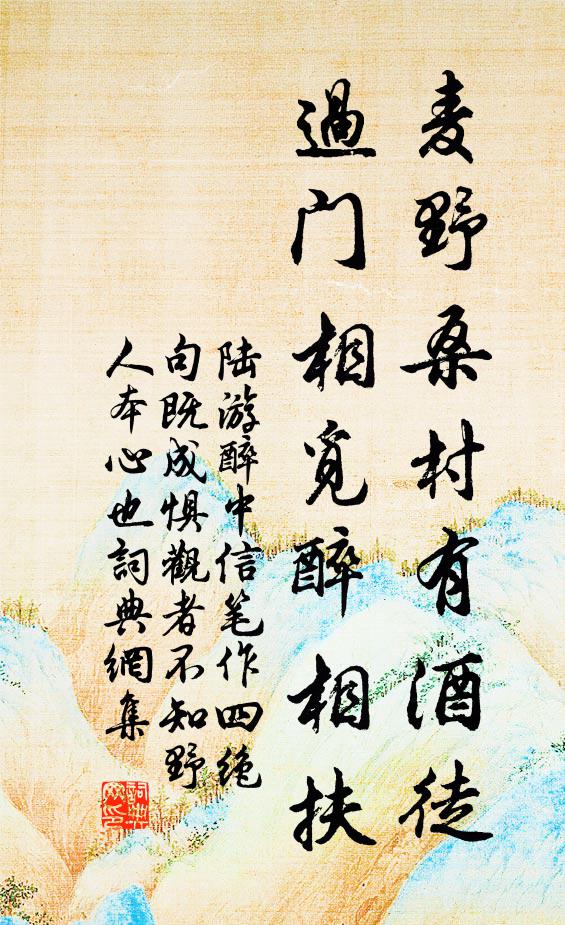 麦野桑村有酒徒
過门相觅醉相扶
陆游醉中信笔作四绝
句既成惧觀者不知野
人本心也詞典網集